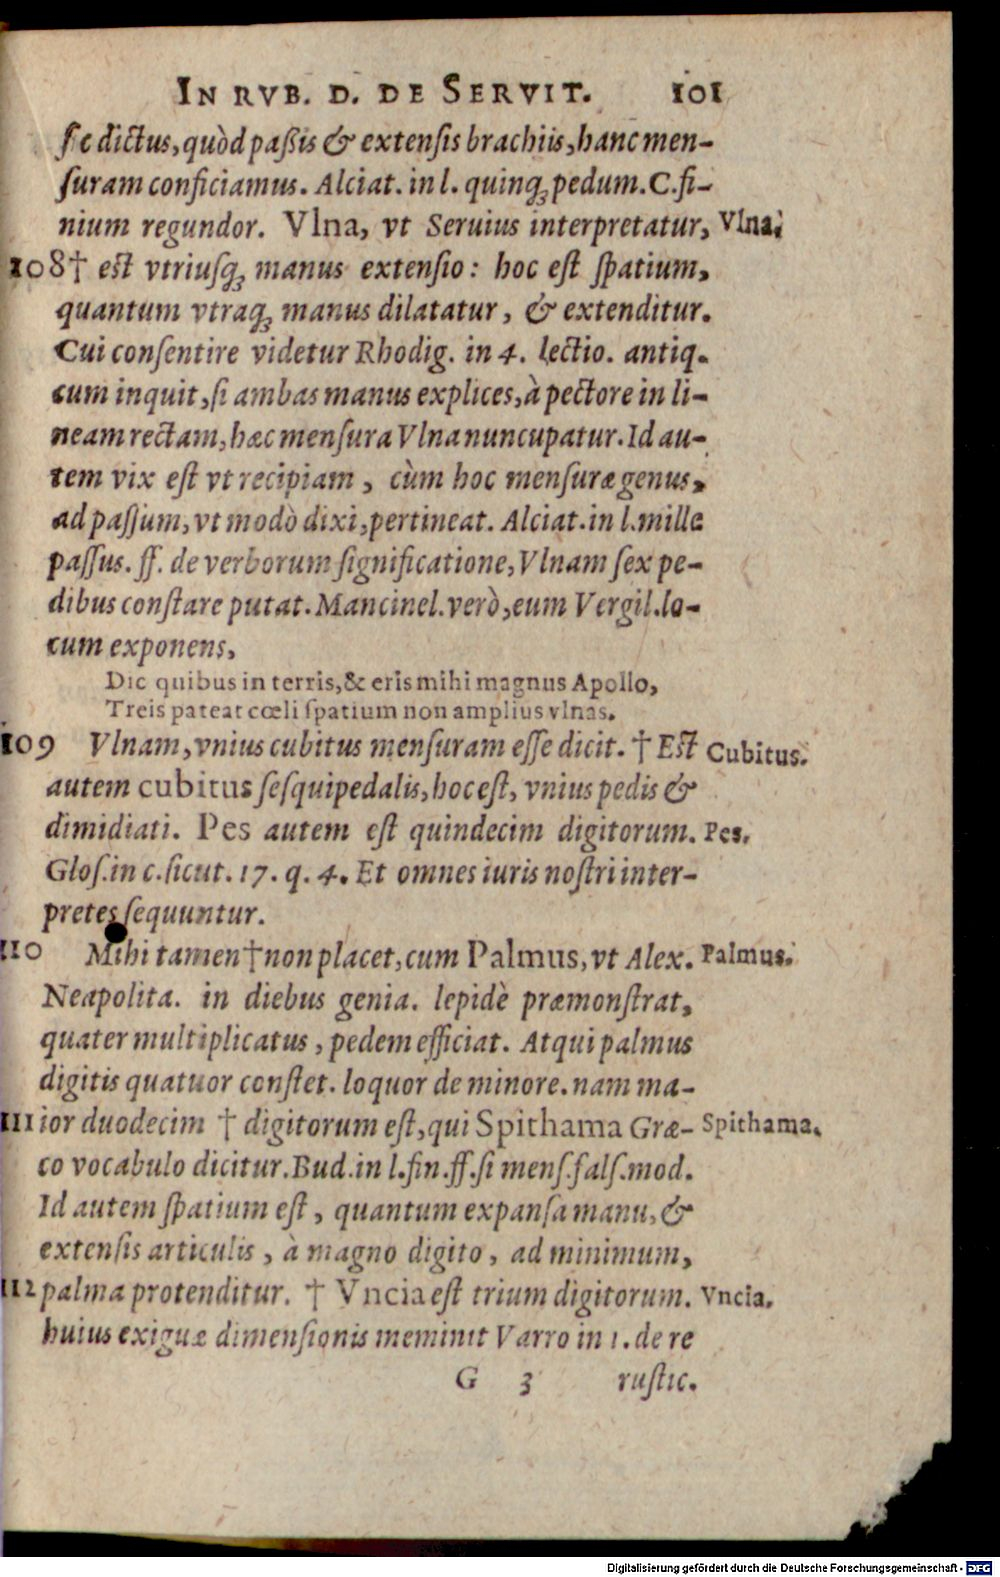 IN RVB. D. DE SERVIT. 101
se dictus, quòd paßis & extensis brachiis, hanc men-
suram conficiamus. Alciat. in l. quinq; pedum. C. fi-
nium regundor. Vlna, vt Seruius interpretatur, Vlna.
108† est vtriusq; manus extensio: hoc est spatium,
quantum vtraq; manus dilatatur, & extenditur.
Cui consentire videtur Rhodig. in 4. lectio. antiq.
cum inquit, si ambas manus explices, à pectore in li-
neam rectam, hæc mensura Vlna nuncupatur. Id au-
tem vix est vt recipiam, cùm hoc mensuræ genus,
ad passum, vt modò dixi, pertineat. Alciat. in l. mille
passus. ff. de verborum significatione, Vlnam sex pe-
dibus constare putat. Mancinel. verò, eum Vergil. lo-
cum exponens,
Dic quibus in terris, & eris mihi magnus Apollo,
Treis pateat cœli spatium non amplius vlnas.
109 Vlnam, vnius cubitus mensuram esse dicit. † Est Cubitus.
autem cubitus sesquipedalis, hoc est, vnius pedis &
dimidiati. Pes autem est quindecim digitorum. Pes.
Glos. in c. sicut. 17. q. 4. Et omnes iuris nostri inter-
pretes sequuntur.
110 Mihi tamen † non placet, cum Palmus, vt Alex. Palmus.
Neapolita. in diebus genia. lepidè præmonstrat,
quater multiplicatus, pedem efficiat. Atqui palmus
digitis quatuor constet. loquor de minore. nam ma-
111 ior duodecim † digitorum est, qui Spithama Græ- Spithama.
co vocabulo dicitur. Bud. in l. fin. ff. si mens. fals. mod.
Id autem spatium est, quantum expansa manu, &
extensis articulis, à magno digito, ad minimum,
112 palma protenditur. † Vncia est trium digitorum. Vncia.
huius exiguæ dimensionis meminit Varro in 1. de re
G 3 rustic.
Digitalisierung gefördert durch die Deutsche Forschungsgemeinschaft - DFG